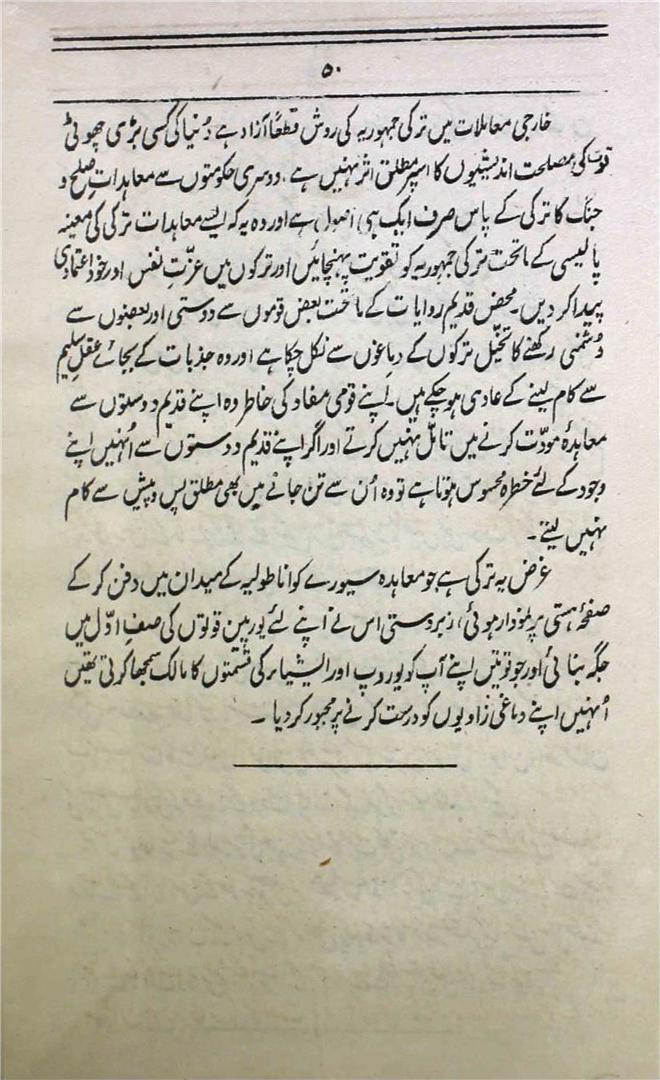 ۵۰
خارجی معاملات میں ترکی جمہوریہ کی روش قطعاً آزاد ہے دُنیا کی کسی بڑی چھوٹی
قوت کی مصلحت اندیشیوں کا اسپر مطلق اثر نہیں ہے، دوسری حکومتوں سے معاہدات صلح و
جنگ کا ترکی کے پاس صرف ایک ہی اُصول ہے اور وہ یہ کہ ایسے معاہدات ترکی کی معینہ
پالیسی کے ماتحت ترکی جمہوریہ کو تقویت پہنچائیں اور ترکوں میں عزّتِ نفس اور خود اعتمادی
پیدا کر دیں۔ محض قدیم روایات کے ماتحت بعض قوموں سے دوستی اور بعضوں سے
دُشمنی رکھنے کا تخیّل ترکوں کے دماغوں سے نکل چکا ہے اور وہ جذبات کے بجائے عقلِ سلیم
سے کام لینے کے عادی ہو چکے ہیں۔ اپنے قومی مفاد کی خاطر وہ اپنے قدیم دوستوں سے
معاہدۂ مودّت کرنے میں تامل نہیں کرتے اور اگر اپنے قدیم دوستوں سے اُنہیں اپنے
وجود کے لئے خطرہ محسوس ہوتا ہے تو وہ اُن سے تن جانے میں بھی مطلق پس و پیش سے کام
نہیں لیتے۔
غرض یہ ترکی ہے جو معاہدہ سیورے کو اناطولیہ کے میدان میں دفن کر کے
صفحۂ ہستی پر نمودار ہوئی، زبردستی اس نے اپنے لئے یورپین قوتوں کی صفِ اوّل میں
جگہ بنائی اور جو قوتیں اپنے آپ کو یوروپ اور ایشیاء کی قسمتوں کا مالک سمجھا کرتی تھیں
اُنہیں اپنے دماغی زاویوں کو درست کرنے پر مجبور کر دیا۔